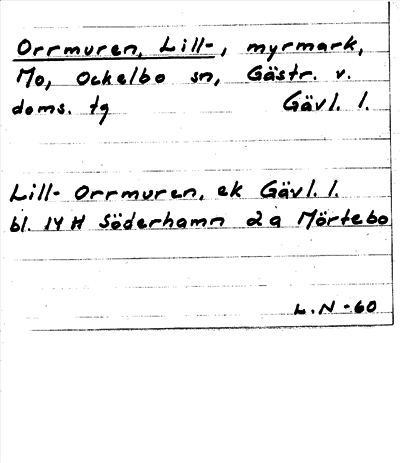 Orrmuren, Lill-, myrmark,
Mo, Ockelbo sn, Gästr. v.
doms. tg Gävl. l.
Lill- Orrmuren, ek Gävl. l.
bl. 14 H Söderhamn 2 a Mörtebo
L.N -60